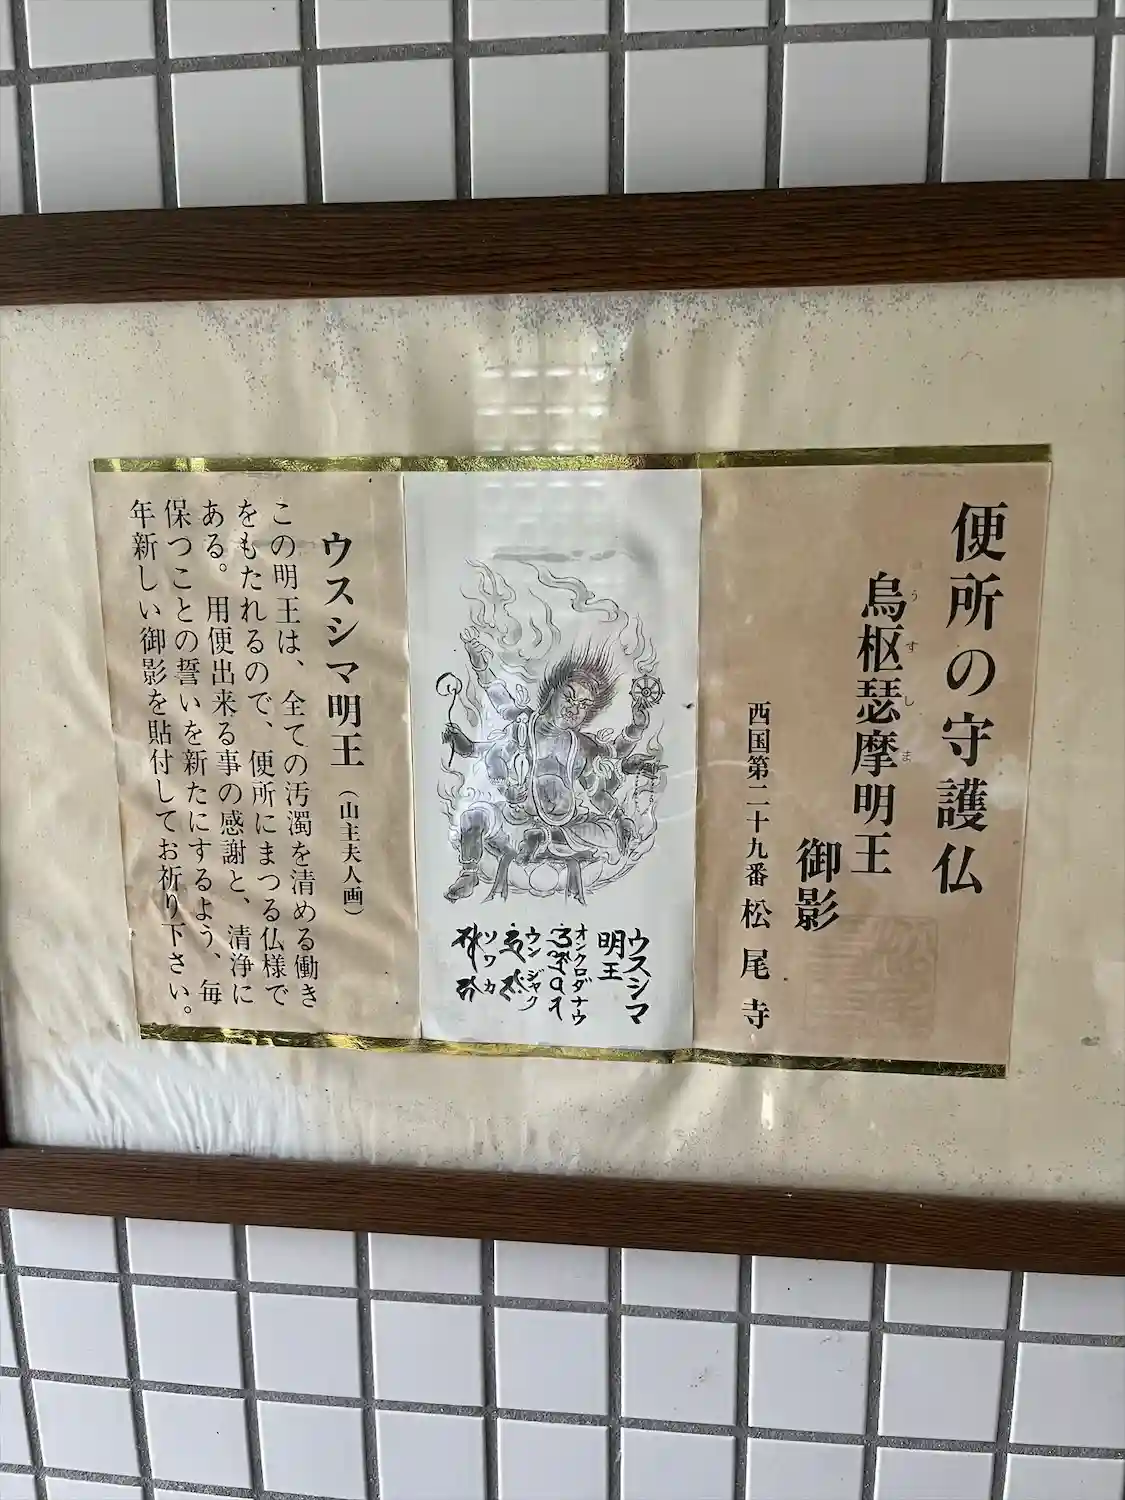 便所の守護仏
烏枢瑟摩明王
うすしま
御影
西国第二十九番 松尾寺
ウスシマ
明王
オンクロダナウ
ウン ジャク
ソワカ
ウスシマ明王（山主夫人画）
この明王は、全ての汚濁を清める働き
をもたれるので、便所にまつる仏様で
ある。用便出来る事の感謝と、清浄に
保つことの誓いを新たにするよう、毎
年新しい御影を貼付してお祈り下さい。